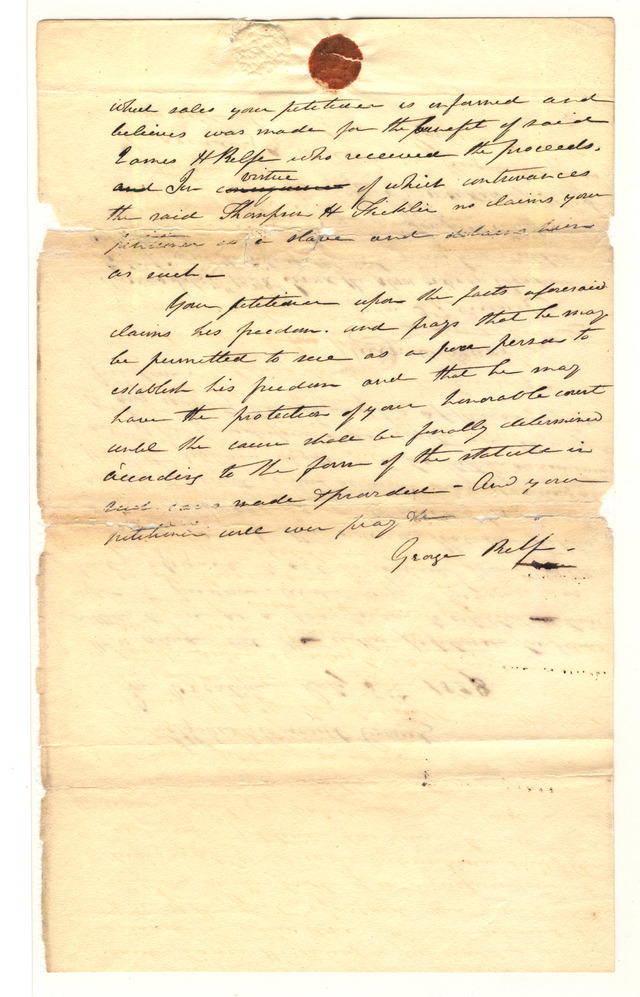 which sales your petitioner is informed and
believes was made for the benefit of said
James H Relfe who received the proceeds.
and In virtue of which contrivances
the said Thompson H Ficklin no claims your
petitioner as a slave and detains him
as such –
Your petitioner upon the facts aforesaid
claims his freedom. and prays that he may
be permitted to sue as a poor person to
establish his freedom and that he may
have the protection of your honorable court
until the cause shall be finally determined
according to the form of the statute in
such case made & provided – And your
petitioner will ever pray &c
George Relf –